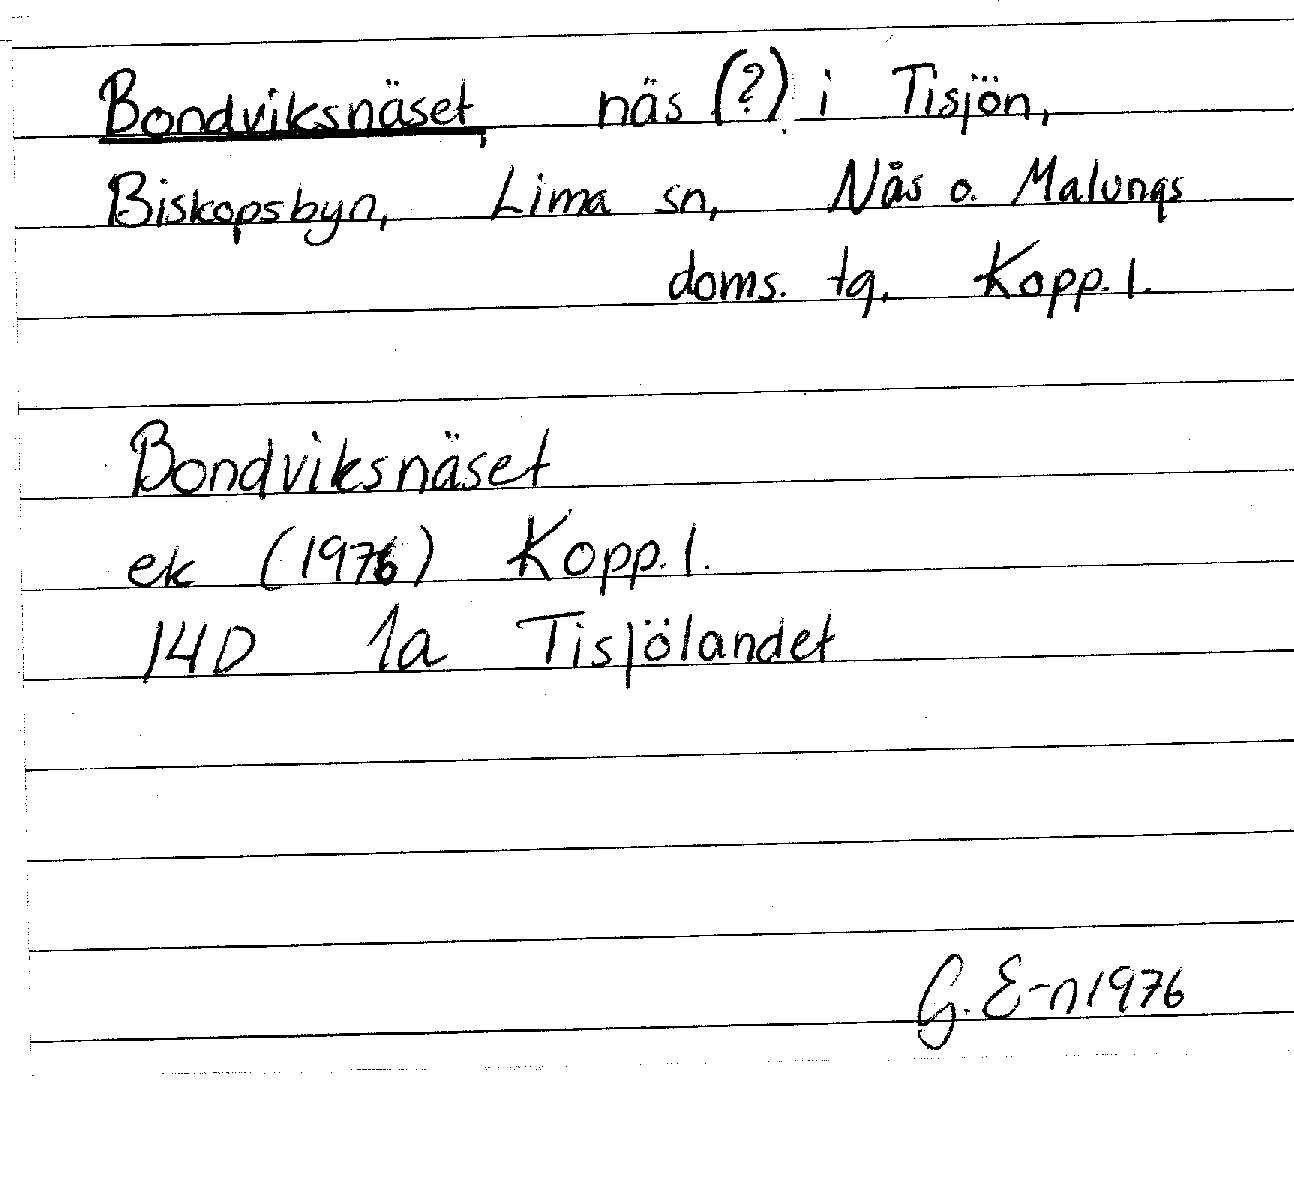 Bondviksnäset, näs (?) i Tisjön,
Biskopsbyn, Lima sn, Nås o. Malungs
doms. tg. Kopp. l.
Bondviksnäset
ek (1976) Kopp. l.
14D 1a Tisjölandet
G. E-n 1976